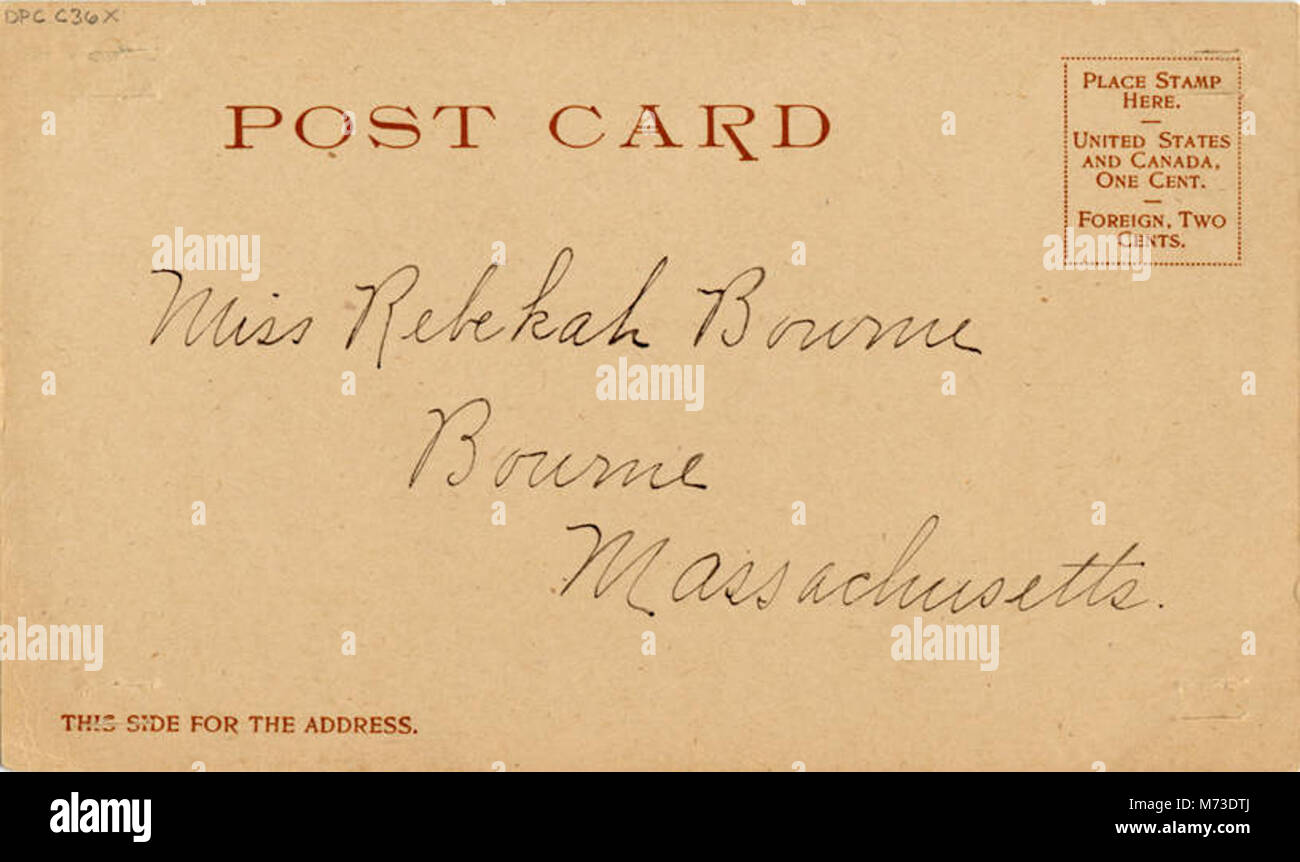 DPC C36X
POST CARD
PLACE STAMP
HERE.
—
UNITED STATES
AND CANADA,
ONE CENT.
—
FOREIGN, TWO
CENTS.
Miss Rebekah Bourne
Bourne
Massachusetts.
THIS SIDE FOR THE ADDRESS.
alamy
a
alamy
Image ID: M73DTJ
www.alamy.com